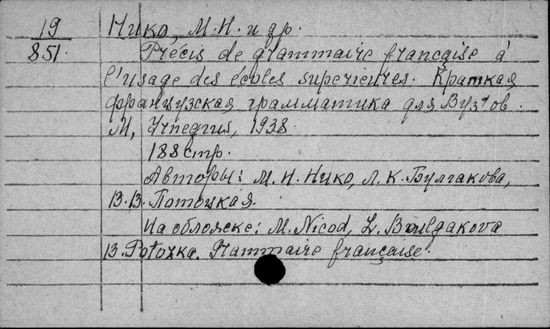 19
851.
Нико, М.Н. и др.
Précis de grammaire française à
l'usage des écoles supérieures. Краткая
французская грамматика для Вуз'ов.
М, Учпедгиз, 1938.
188 стр.
Авторы: М. Н. Нико, Л. К. Булгакова,
В.В. Потоцкая.
На обложке: M. Nicod, L. Boulgakova
B. Potozka. Grammaire française.